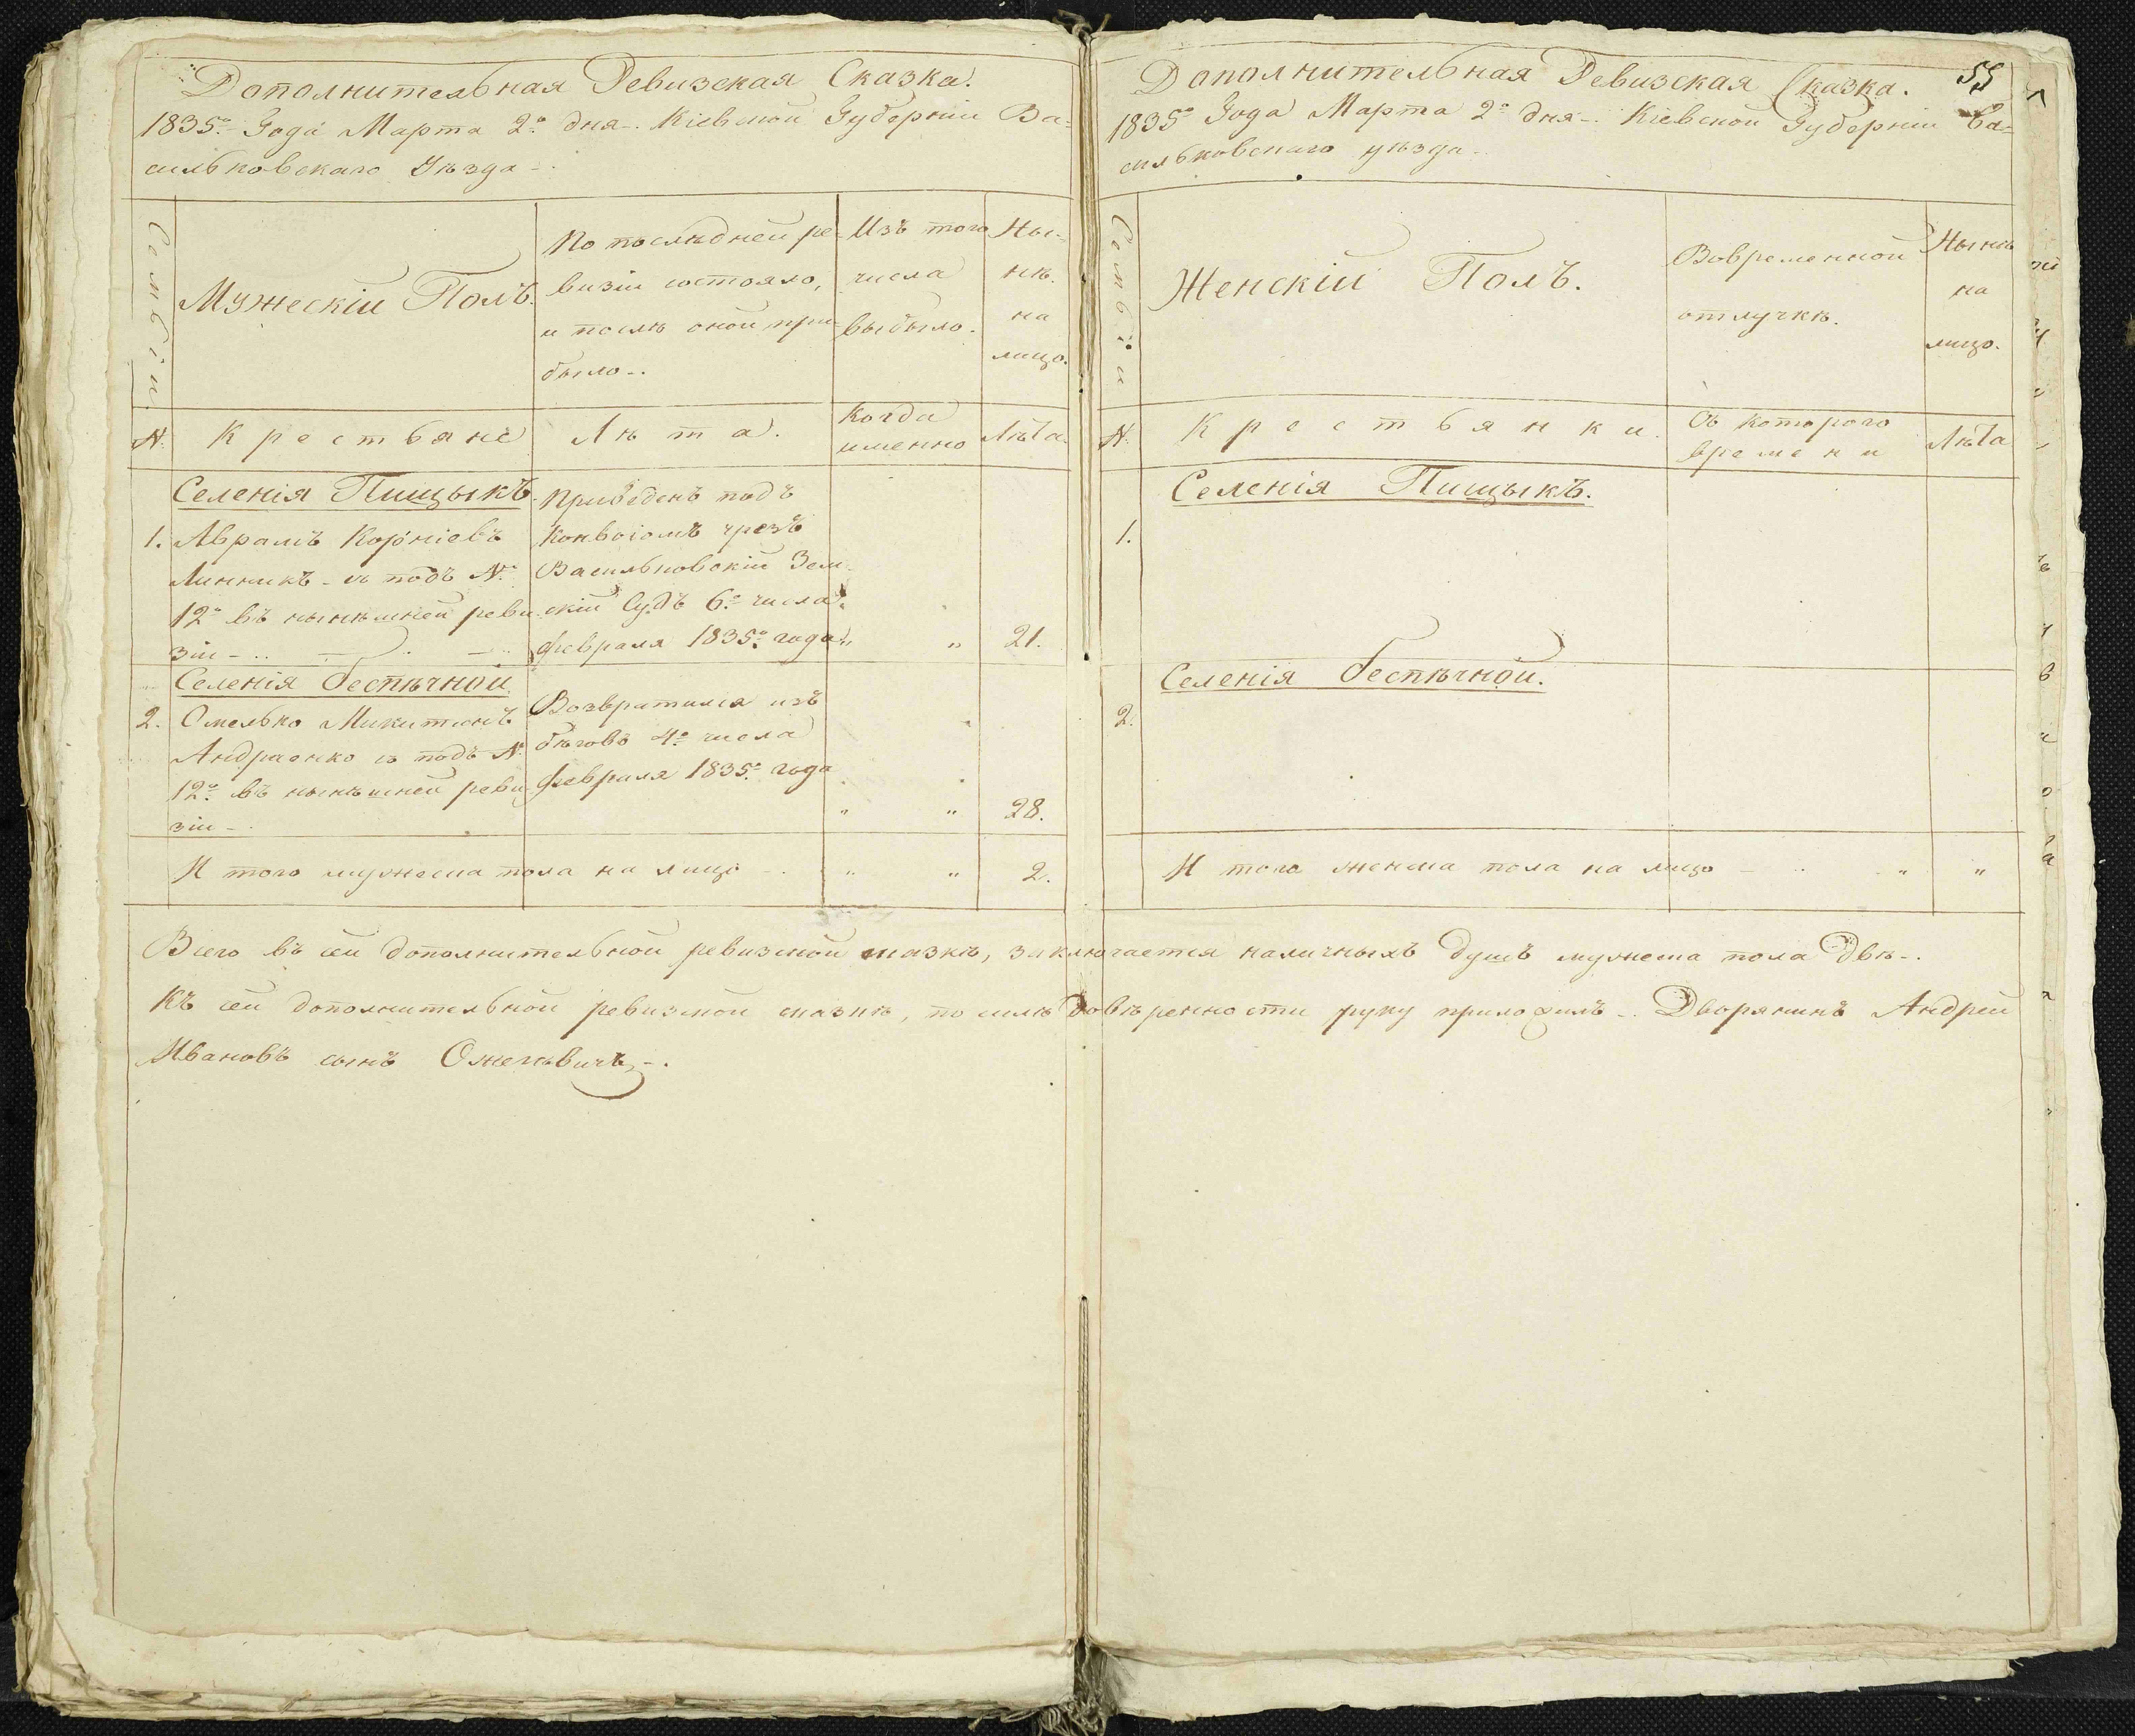 Дополнительная Ревизская Сказка.
1835го Года Марта 2го дня. Кіевской Губерніи Ва=
сильковскаго Уѣзда
Семьи.
Мужескій Полъ.
По послѣдней ре=
визіи состояло,
и послѣ оной при
было.
Изъ того
числа
выбыло.
Ны=
нѣ
на
лицо.
№
Крестьяне
Лѣта.
Когда
именно
Лѣта.
Селенія Пищыкъ.
1. Аврамъ Корніевъ
Линникъ съ подъ №
12го въ нынѣшней реви
зіи
Приведенъ подъ
Конвоіомъ чрезъ
Васильковскій Зем
скій Судъ 6го числа
февраля 1835го года „ „ 21.
Селенія Беспѣчной
2. Омелько Микитинъ
Андрѣенко съ подъ №
12го въ нынѣшней реви
зіи
Возвратился изъ
бѣговъ 4го числа
февраля 1835го года
„ „ 28.
И того мужеска пола на лицо „ „ 2.
Дополнительная Ревизская Сказка. 55
1835го Года Марта 2го дня Кіевской Губерніи Ва=
сильковскаго уѣзда
Семьи
Женскій Полъ.
Вовременной
отлучкѣ.
Нынѣ
на
лицо.
№
Крестьянки.
Съ которого
времени
Лѣта
Селенія Пищыкъ.
1.
Селенія Беспѣчной.
2.
И того женска пола на лицо „ „
Всего въ сей дополнительной ревизской сказкѣ, заключается наличныхъ душъ мужеска пола двѣ.
Къ сей дополнительной ревизской сказкѣ, по силѣ довѣренности руку приложилъ. Дворянинъ Андрей
Ивановъ сынъ